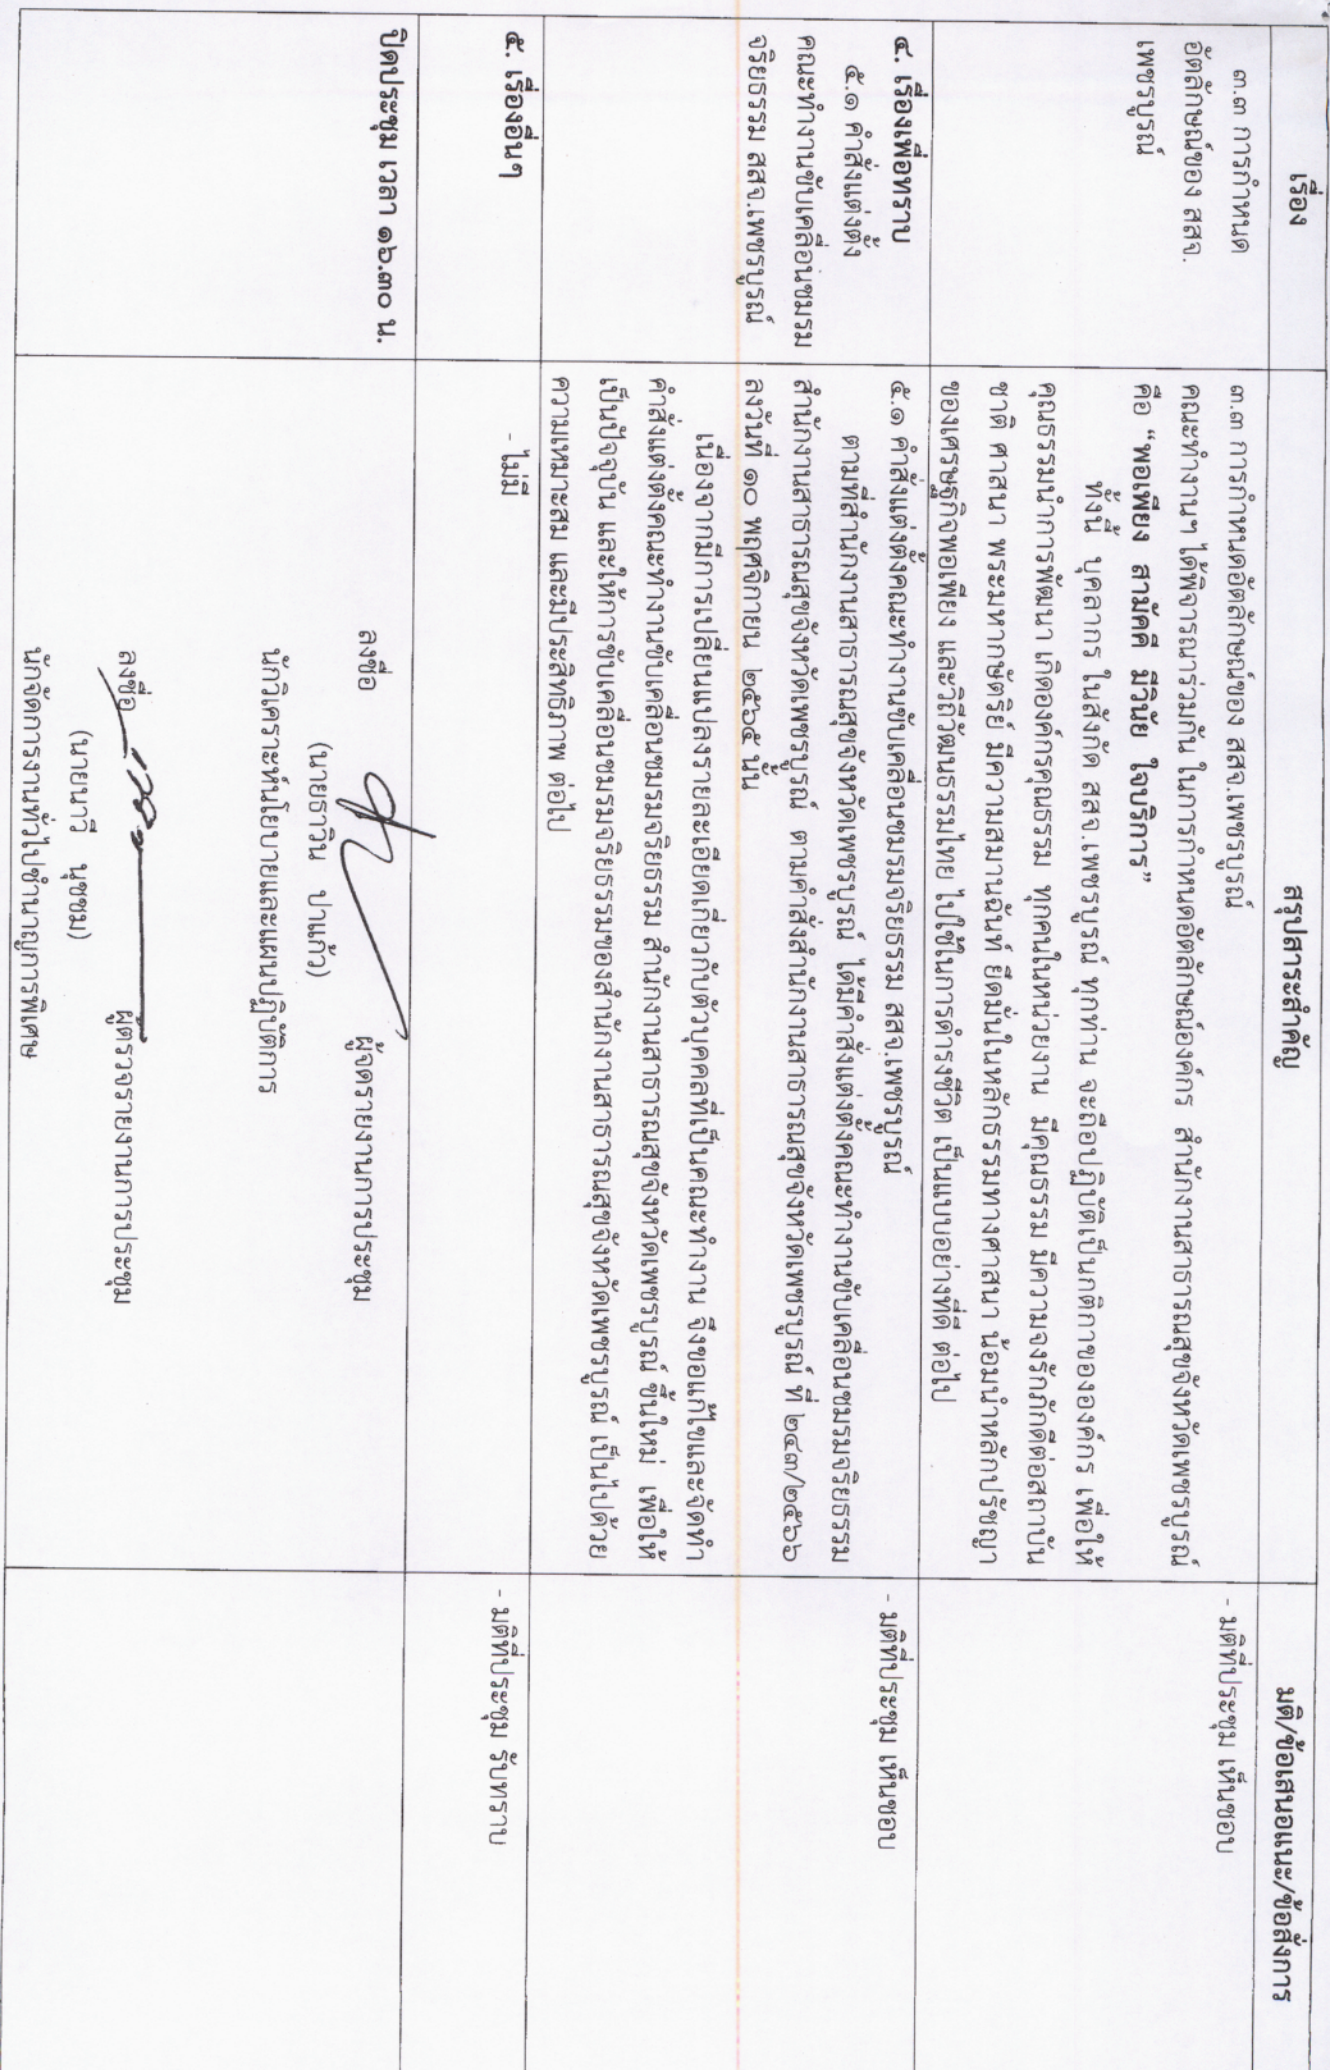 เรื่อง
สรุปสาระสำคัญ
มติ/ข้อเสนอแนะ/ข้อสั่งการ
๓.๓ การกำหนด
อัตลักษณ์ของ สสจ.
เพชรบูรณ์
๓.๓ การกำหนดอัตลักษณ์ของ สสจ.เพชรบูรณ์
คณะทำงานฯ ได้พิจารณาร่วมกัน ในการกำหนดอัตลักษณ์องค์กร สำนักงานสาธารณสุขจังหวัดเพชรบูรณ์
คือ “พอเพียง สามัคคี มีวินัย ใจบริการ”
ทั้งนี้ บุคลากร ในสังกัด สสจ.เพชรบูรณ์ ทุกท่าน จะถือปฏิบัติเป็นกติกาขององค์กร เพื่อให้
คุณธรรมนำการพัฒนา เกิดองค์กรคุณธรรม ทุกคนในหน่วยงาน มีคุณธรรม มีความจงรักภักดีต่อสถาบัน
ชาติ ศาสนา พระมหากษัตริย์ มีความสมานฉันท์ ยึดมั่นในหลักธรรมทางศาสนา น้อมนำหลักปรัชญา
ของเศรษฐกิจพอเพียง และวิถีวัฒนธรรมไทย ไปใช้ในการดำรงชีวิต เป็นแบบอย่างที่ดี ต่อไป
- มติที่ประชุม เห็นชอบ
๔. เรื่องเพื่อทราบ
๕.๑ คำสั่งแต่งตั้ง
คณะทำงานขับเคลื่อนชมรม
จริยธรรม สสจ.เพชรบูรณ์
๕.๑ คำสั่งแต่งตั้งคณะทำงานขับเคลื่อนชมรมจริยธรรม สสจ.เพชรบูรณ์
ตามที่สำนักงานสาธารณสุขจังหวัดเพชรบูรณ์ ได้มีคำสั่งแต่งตั้งคณะทำงานขับเคลื่อนชมรมจริยธรรม
สำนักงานสาธารณสุขจังหวัดเพชรบูรณ์ ตามคำสั่งสำนักงานสาธารณสุขจังหวัดเพชรบูรณ์ ที่ ๒๔๓/๒๕๖๖
ลงวันที่ ๑๐ พฤศจิกายน ๒๕๖๕ นั้น
เนื่องจากมีการเปลี่ยนแปลงรายละเอียดเกี่ยวกับตัวบุคคลที่เป็นคณะทำงาน จึงขอแก้ไขและจัดทำ
คำสั่งแต่งตั้งคณะทำงานขับเคลื่อนชมรมจริยธรรม สำนักงานสาธารณสุขจังหวัดเพชรบูรณ์ ขึ้นใหม่ เพื่อให้
เป็นปัจจุบัน และให้การขับเคลื่อนชมรมจริยธรรมของสำนักงานสาธารณสุขจังหวัดเพชรบูรณ์ เป็นไปด้วย
ความเหมาะสม และมีประสิทธิภาพ ต่อไป
- มติที่ประชุม เห็นชอบ
๕. เรื่องอื่นๆ
- ไม่มี
- มติที่ประชุม รับทราบ
ปิดประชุม เวลา ๑๖.๓๐ น.
ลงชื่อ ผู้จดรายงานการประชุม
(นายธาวิน ปาแก้ว)
นักวิเคราะห์นโยบายและแผนปฏิบัติการ
ลงชื่อ ผู้ตรวจรายงานการประชุม
(นายนาวี นุชชม)
นักจัดการงานทั่วไปชำนาญการพิเศษ